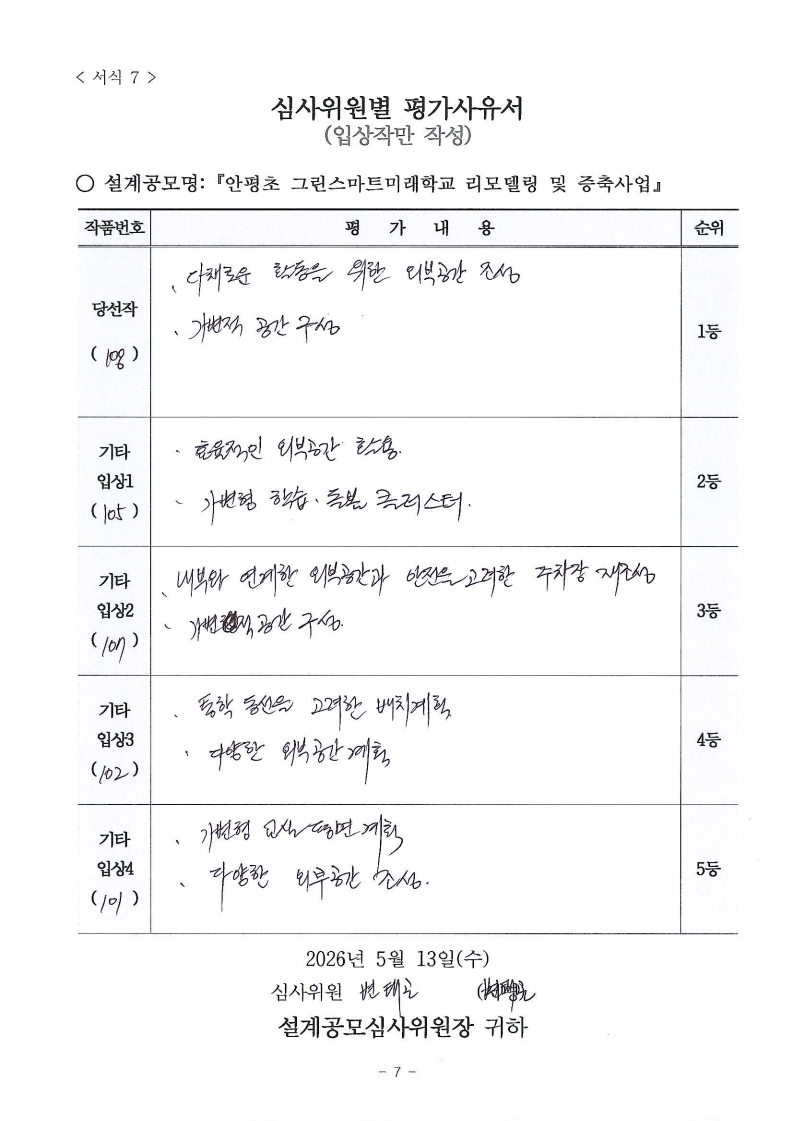 < 서식 7 >
심사위원별 평가사유서
(입상작만 작성)
○ 설계공모명:『안평초 그린스마트미래학교 리모델링 및 증축사업』
작품번호 평 가 내 용 순위
당선작
( 108 )
· 다채로운 활동을 위한 외부공간 조성
· 가변적 공간 구성
1등
기타
입상1
( 105 )
· 효율적인 외부공간 활용.
· 가변형 학습·돌봄 클러스터.
2등
기타
입상2
( 107 )
· 내부와 연계한 외부공간과 안전을 고려한 주차장 재조성
· 가변적 공간 구성.
3등
기타
입상3
( 102 )
· 통학 동선을 고려한 배치계획
· 다양한 외부공간 계획
4등
기타
입상4
( 101 )
· 가변형 교실 평면 계획
· 다양한 외부공간 조성.
5등
2026년 5월 13일(수)
심사위원
설계공모심사위원장 귀하
- 7 -